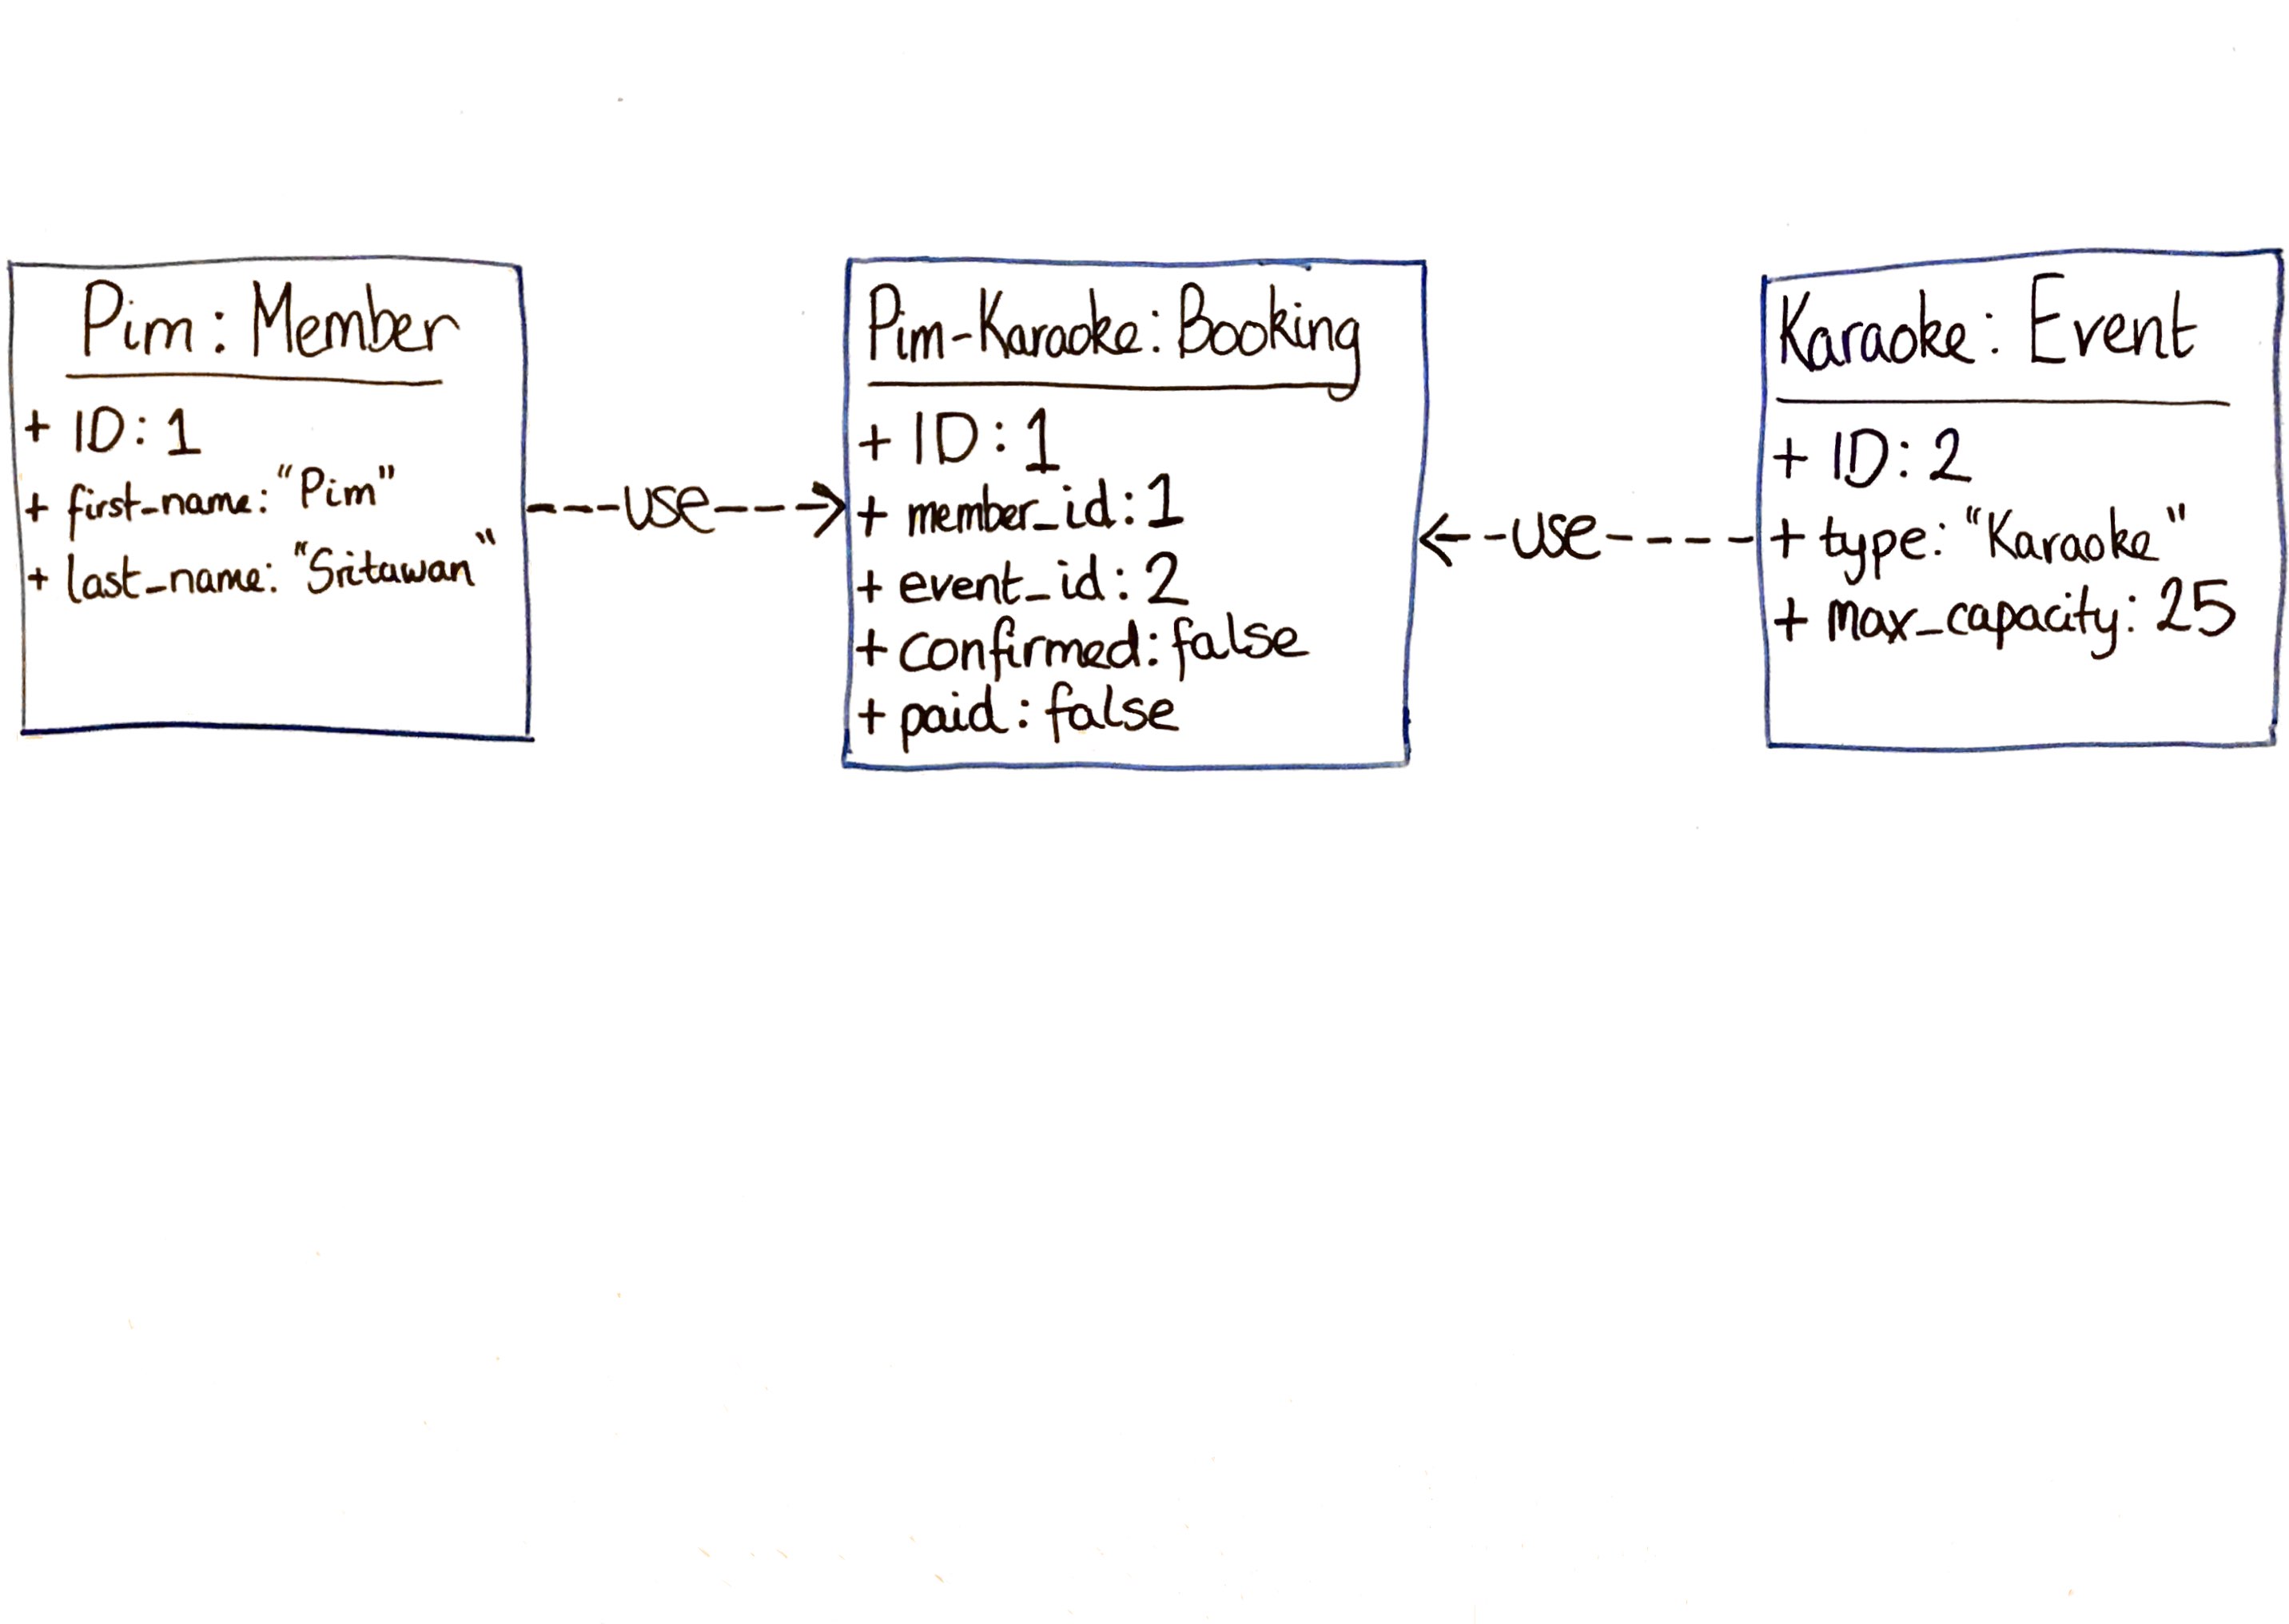 Pim: Member
+ ID: 1
+ first_name: "Pim"
+ last_name: "Sritawan"
---use--->
Pim-Karaoke: Booking
+ ID: 1
+ member_id: 1
+ event_id: 2
+ confirmed: false
+ paid: false
<--use-----
Karaoke: Event
+ ID: 2
+ type: "Karaoke"
+ max_capacity: 25